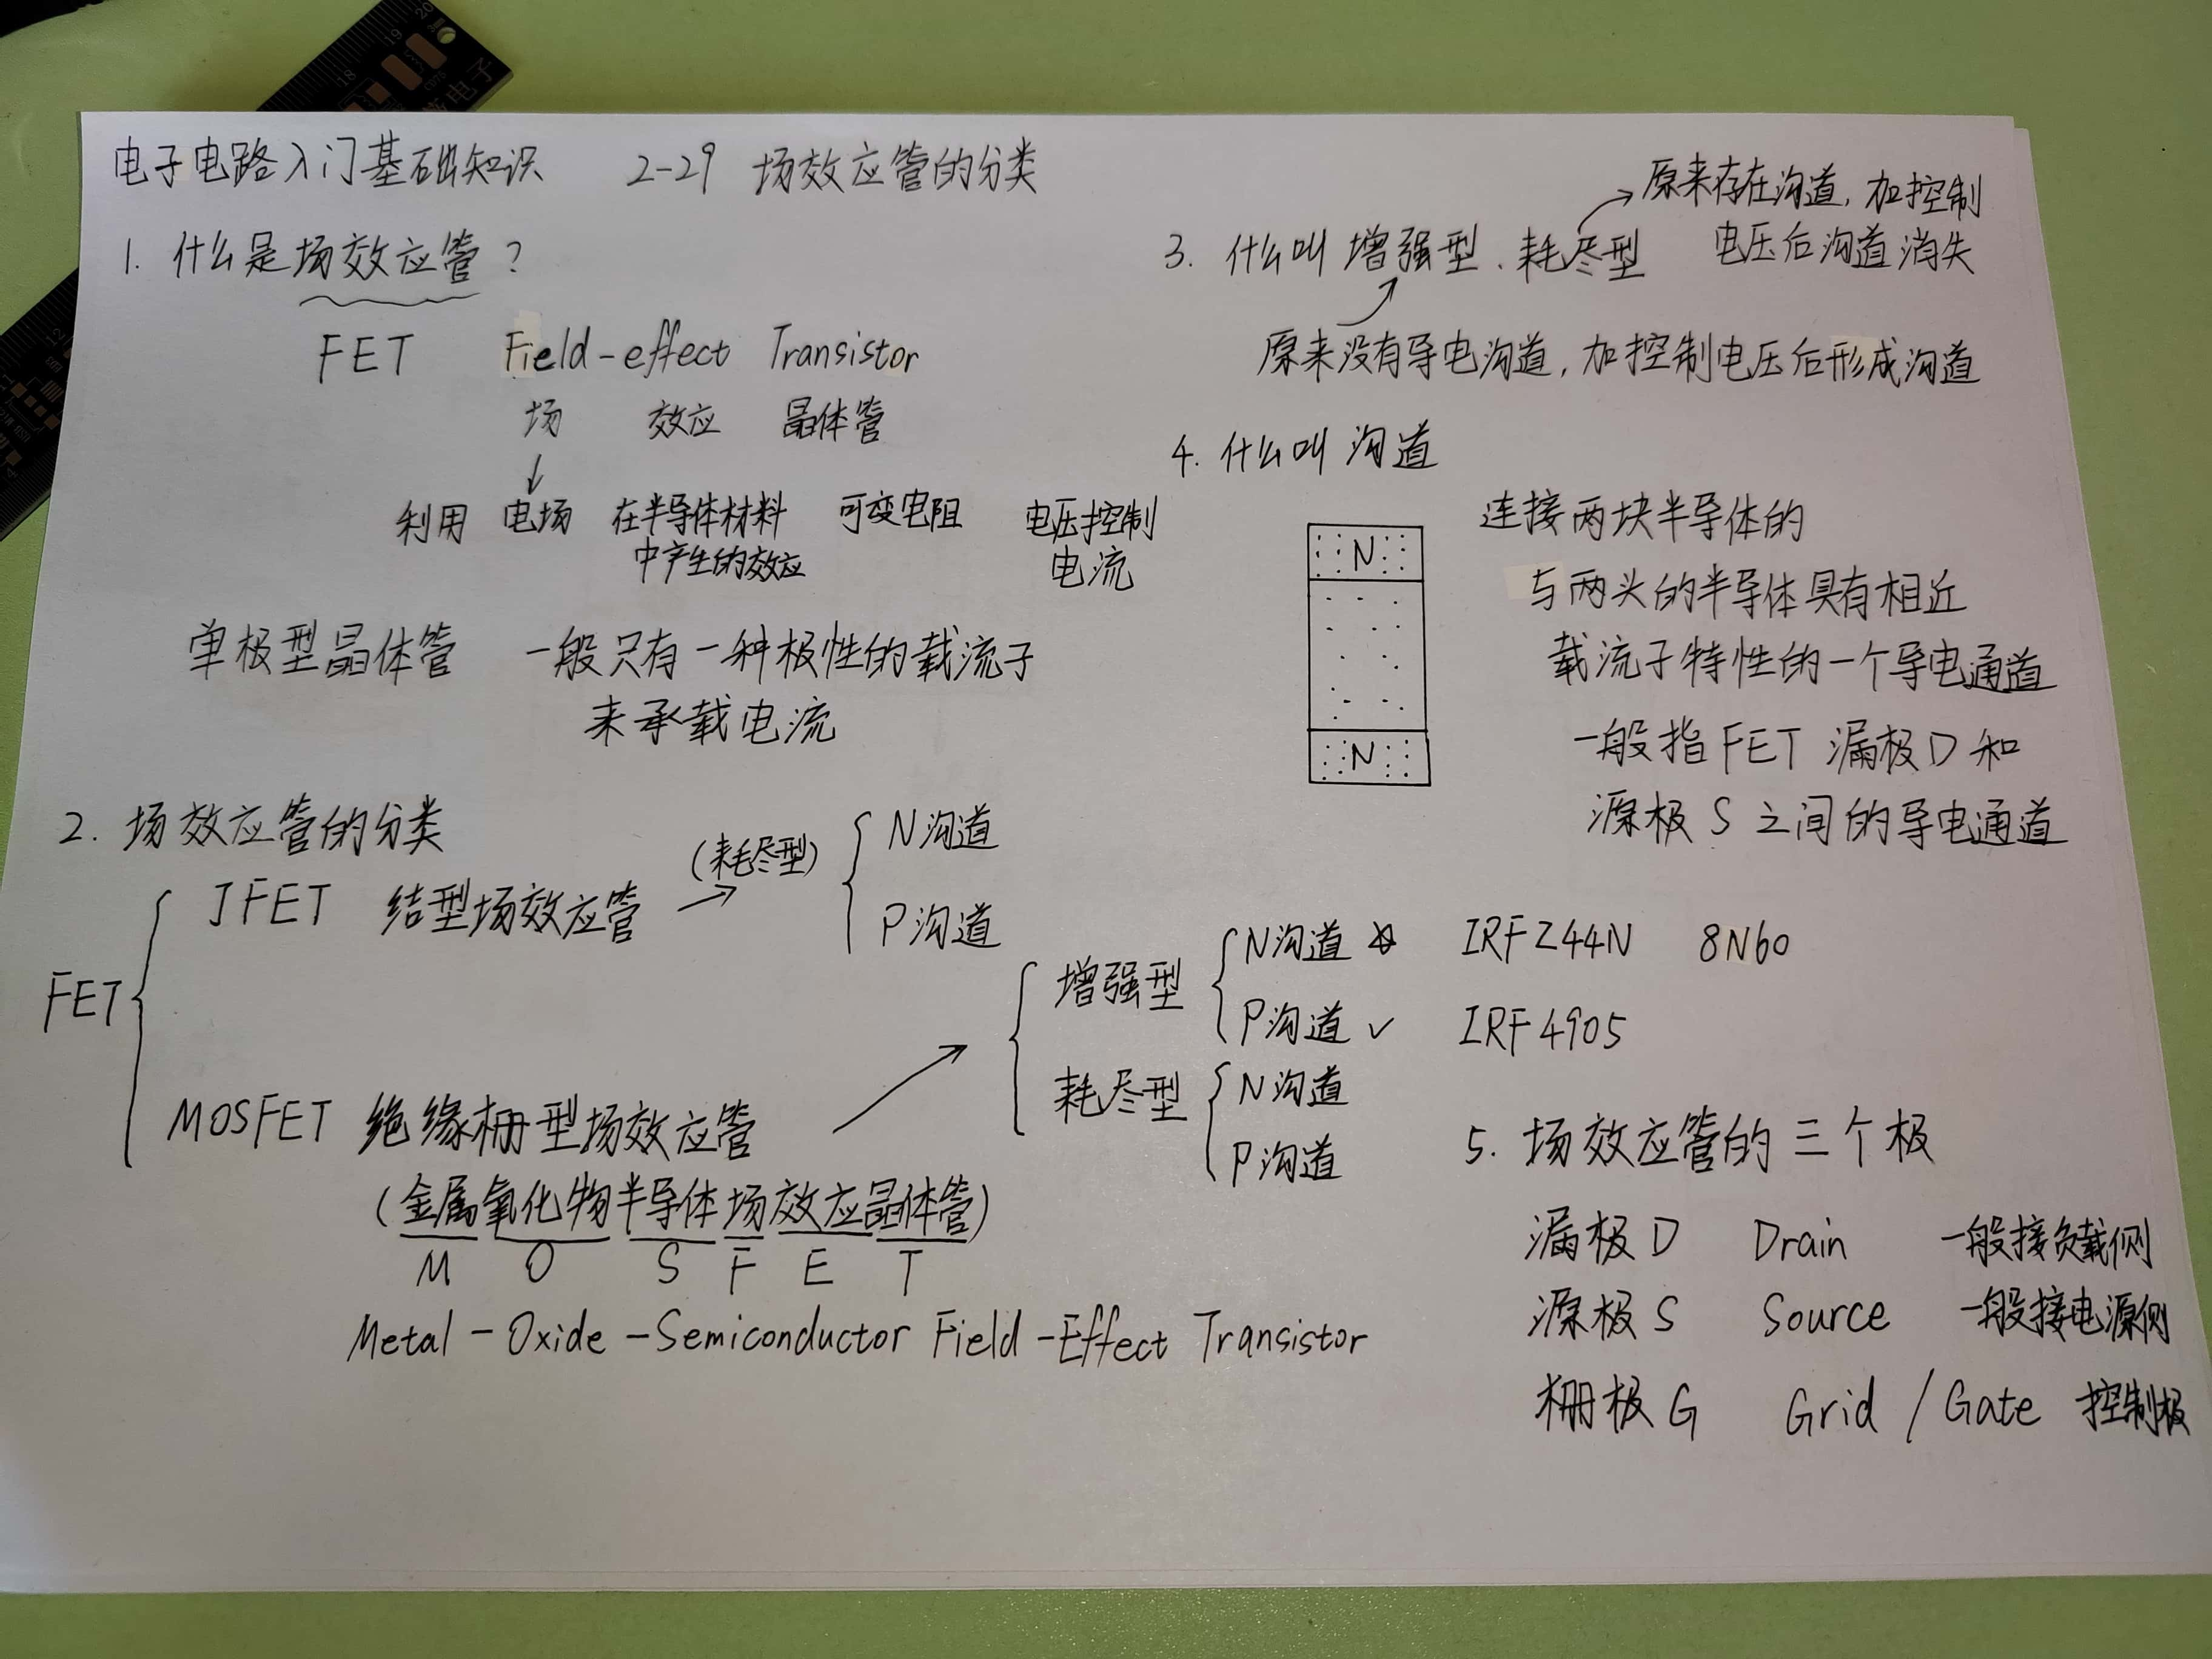 电子电路入门基础知识 2-29 场效应管的分类
1. 什么是场效应管?
FET Field-effect Transistor
场 效应 晶体管
利用 电场 在半导体材料 可变电阻 电压控制
中产生的效应 电流
单极型晶体管 一般只有一种极性的载流子
来承载电流
2. 场效应管的分类
FET
JFET 结型场效应管 (耗尽型)
N沟道
P沟道
MOSFET 绝缘栅型场效应管
(金属氧化物半导体场效应晶体管)
M O S F E T
Metal-Oxide-Semiconductor Field-Effect Transistor
增强型
N沟道 IRFZ44N 8N60
P沟道 ✓ IRF4905
耗尽型
N沟道
P沟道
3. 什么叫 增强型、耗尽型
原来存在沟道, 加控制
电压后沟道消失
原来没有导电沟道, 加控制电压后形成沟道
4. 什么叫 沟道
N
N
连接两块半导体的
与两头的半导体具有相近
载流子特性的一个导电通道
一般指FET 漏极D和
源极S之间的导电通道
5. 场效应管的三个极
漏极D Drain 一般接负载侧
源极S Source 一般接电源侧
栅极G Grid / Gate 控制极
18 19 20
12
电子